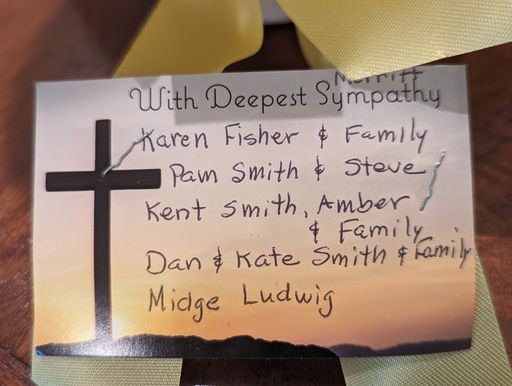 Merritt
With Deepest Sympathy
Karen Fisher & Family
Pam Smith & Steve
Kent Smith, Amber
& Family
Dan & Kate Smith & Family
Midge Ludwig